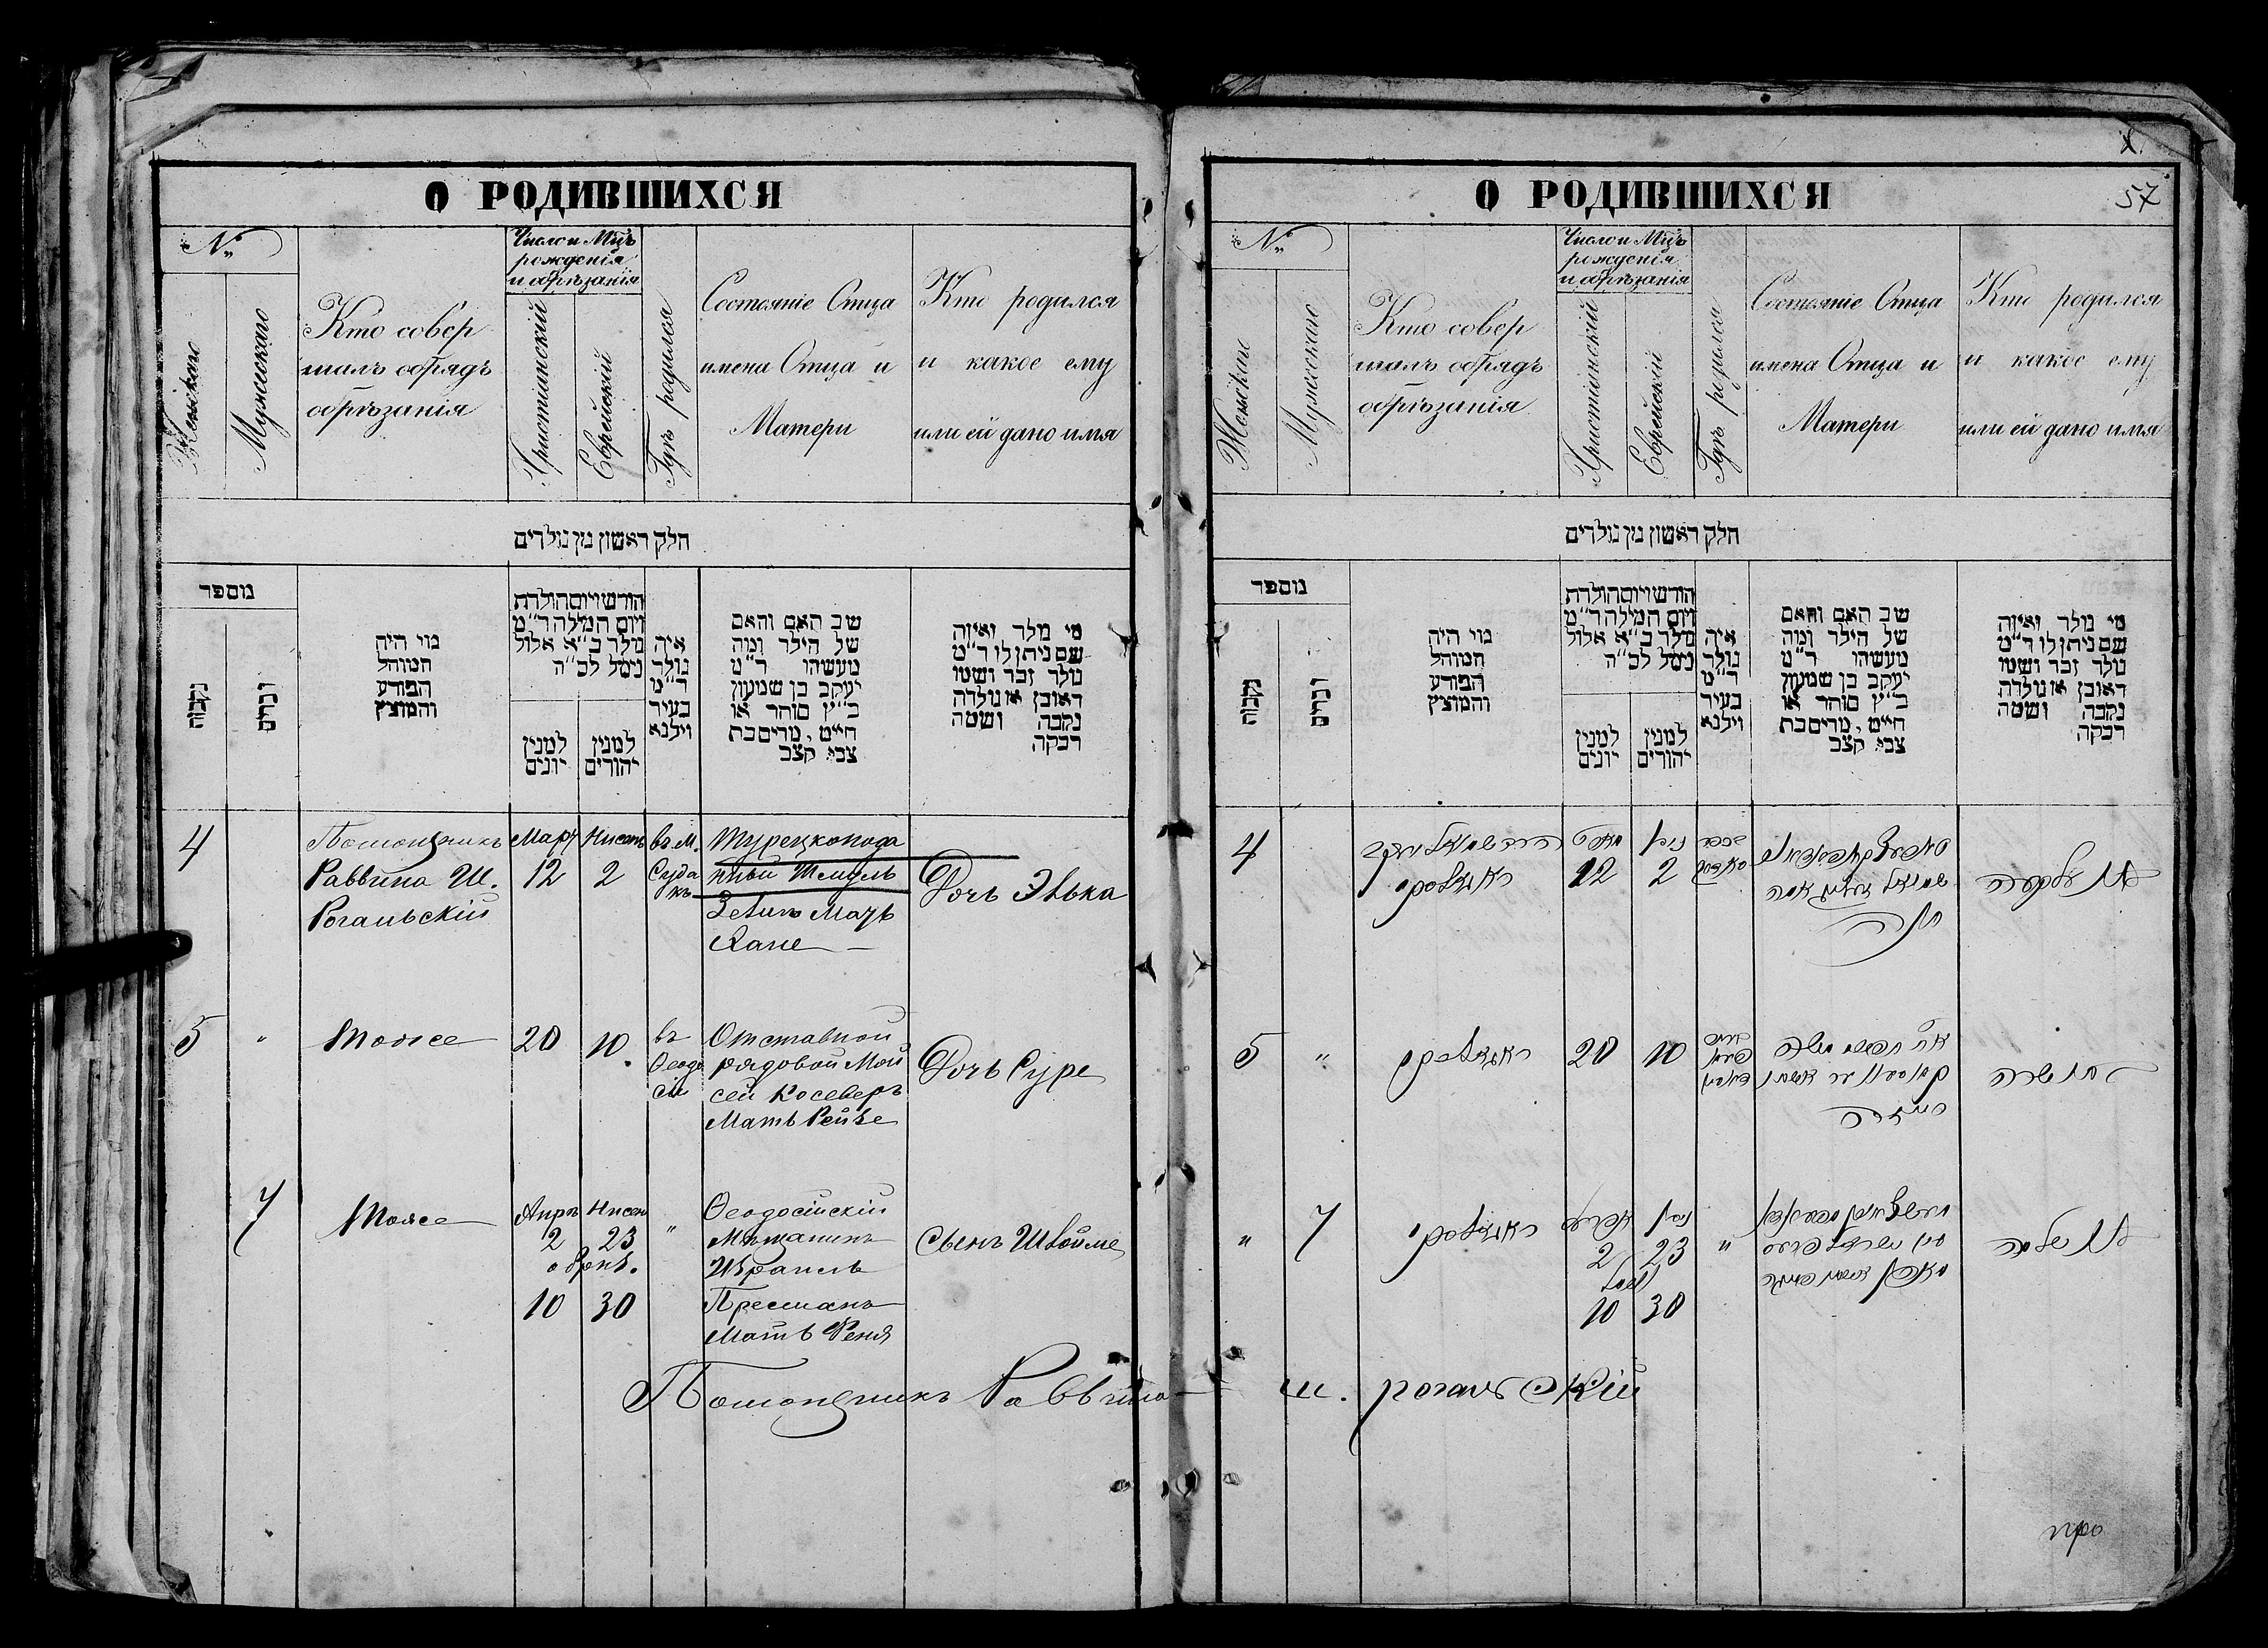 О РОДИВШИХСЯ
№
Женскаго
Мужескаго
Кто совер
шалъ обрядъ
обрѣзанія
Число и Мцъ
рожденія
и обрѣзанія
Христіанскій
Еврейскій
Гдѣ родился
Состояніе Отца
имена Отца и
Матери
Кто родился
и какое ему
или ей дано имя
חלק ראשון מן נולדים
מספר
נקבות
זכרים
מי היה
המוהל
הפורע
והמוצץ
חודש ויום הולדת
ויום המילה ד״מ
נולד ב״א אלול
נימל לכ״ה
למנין
יונים
למנין
יהודים
איה
נולד
ד״מ
בעיר
וילנא
שב האם והאם
של הילד ומה
מעשהו ד״מ
יעקב בן שמעון
כ״ץ סוחר או
חייט, מרים בת
צבי קצב
מי נולד ואיזה
שם ניתן לו ד״מ
נולד זכר ושמו
ראובן או נולדה
נקבה ושמה
רבקה
4
Помощникъ
Раввина Ш.
Рогальскій
Мар.
12
Нисанъ
2
въ м.
Суда
къ
Турецкопода
ный Шмуль
Зелигъ Мать
Хане
Дочь Элька
5
"
Тоже
20
10
въ
Ѳеодо
сіи
Отставной
рядовой Мой
сей Косеверъ
Мать Рейзе
Дочь Суре
7
Тоже
Апрѣ
2
Нисанъ
23
обрѣз.
10
30
"
Ѳеодосійскій
Мѣщанинъ
Израиль
Пресманъ
Мать Феня
Сынъ Шлойме
Помощникъ Раввина
О РОДИВШИХСЯ
57
№
Женскаго
Мужескаго
Кто совер
шалъ обрядъ
обрѣзанія
Число и Мцъ
рожденія
и обрѣзанія
Христіанскій
Еврейскій
Гдѣ родился
Состояніе Отца
имена Отца и
Матери
Кто родился
и какое ему
или ей дано имя
חלק ראשון מן נולדים
מספר
נקבות
זכרים
מי היה
המוהל
הפורע
והמוצץ
חודש ויום הולדת
ויום המילה ד״מ
נולד ב״א אלול
נימל לכ״ה
למנין
יונים
למנין
יהודים
איה
נולד
ד״מ
בעיר
וילנא
שב האם והאם
של הילד ומה
מעשהו ד״מ
יעקב בן שמעון
כ״ץ סוחר או
חייט, מרים בת
צבי קצב
מי נולד ואיזה
שם ניתן לו ד״מ
נולד זכר ושמו
ראובן או נולדה
נקבה ושמה
רבקה
4
ראגאלסקי
12
ניסן
2
חנה
5
"
ראגאלסקי
20
10
בת שרה
"
7
ראגאלסקי
אפריל
2
ניסן
23
נמול
10
30
"
בן שלמה
Ш. Рогальскій